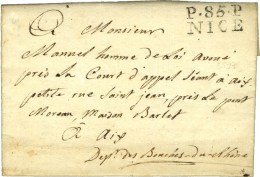 P.85.P
NICE
A Monsieur
Manuel homme de Loi avoué
près la Court d'appel Séant à aix
petite rue Saint jean, près le pont
Moreau, Maison Barlet
A Aix
Dept. des Bouches-du-rhône